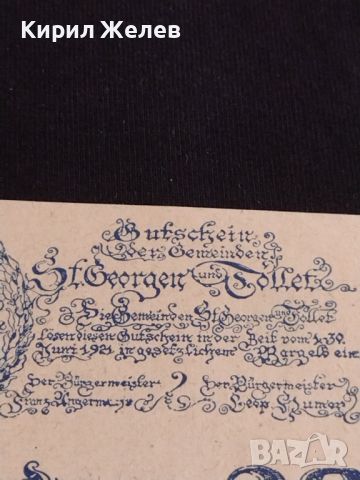 Кирил Желев
Gutschein
der Gemeinden
St. Georgen und Tollet
Die Gemeinden St. Georgen und Tollet
lösen diesen Gutschein in der Zeit vom 1.-30.
Juni 1921 in gesetzlichem Bargeld ein.
Der Bürgermeister Der Bürgermeister
Franz Leop.
BAZAR